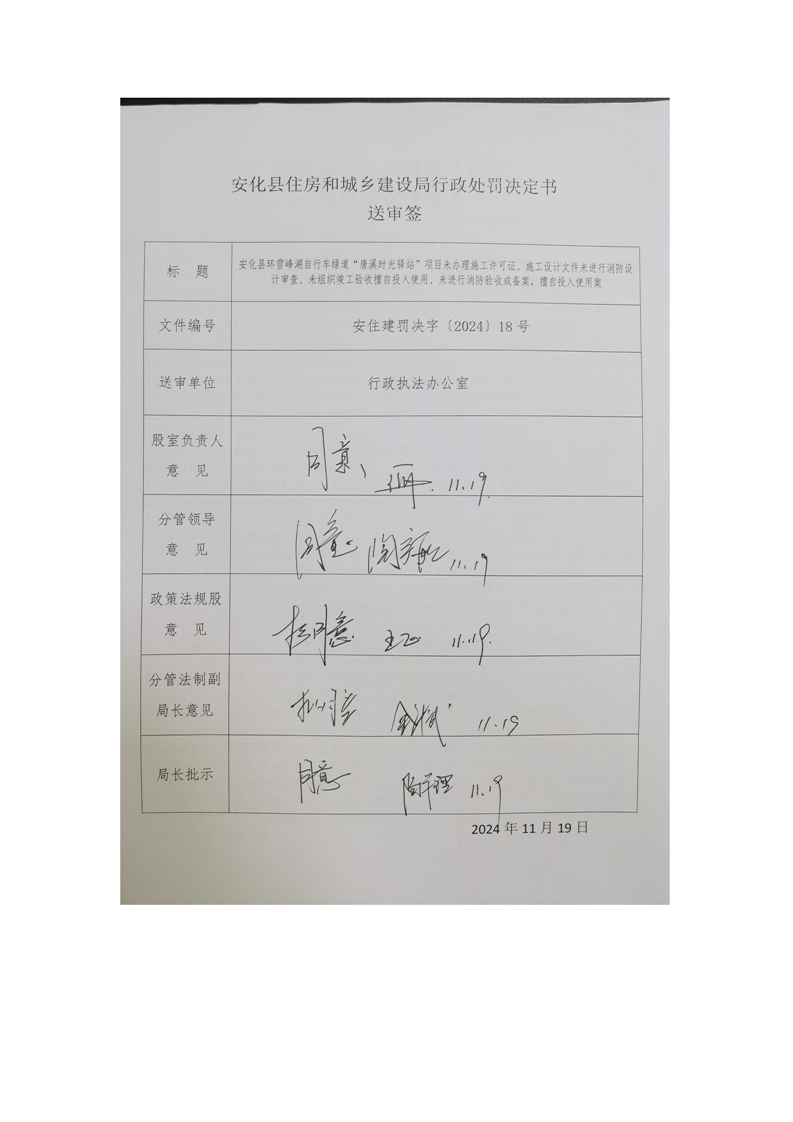 安化县住房和城乡建设局行政处罚决定书
送审签
标 题
安化县环雪峰湖自行车绿道“唐溪时光驿站”项目未办理施工许可证、施工设计文件未进行消防设
计审查、未组织竣工验收擅自投入使用、未进行消防验收或备案，擅自投入使用案
文件编号
安住建罚决字〔2024〕18 号
送审单位
行政执法办公室
股室负责人
意 见
同意、 11.19.
分管领导
意 见
同意 11.19
政策法规股
意 见
拟同意 11.19.
分管法制副
局长意见
11.19
局长批示
同意 11.19
2024 年 11 月 19 日